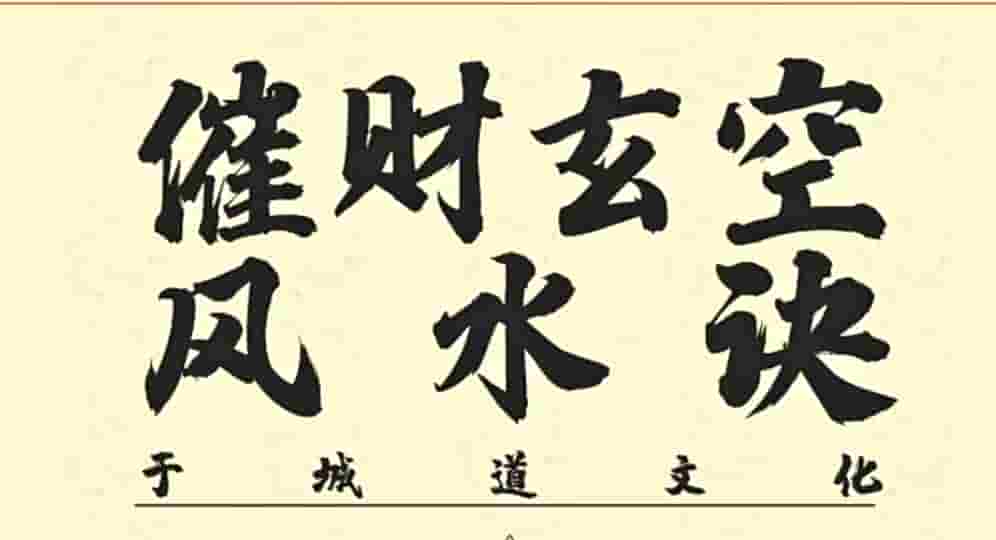 催财玄空
风水诀
于城道文化